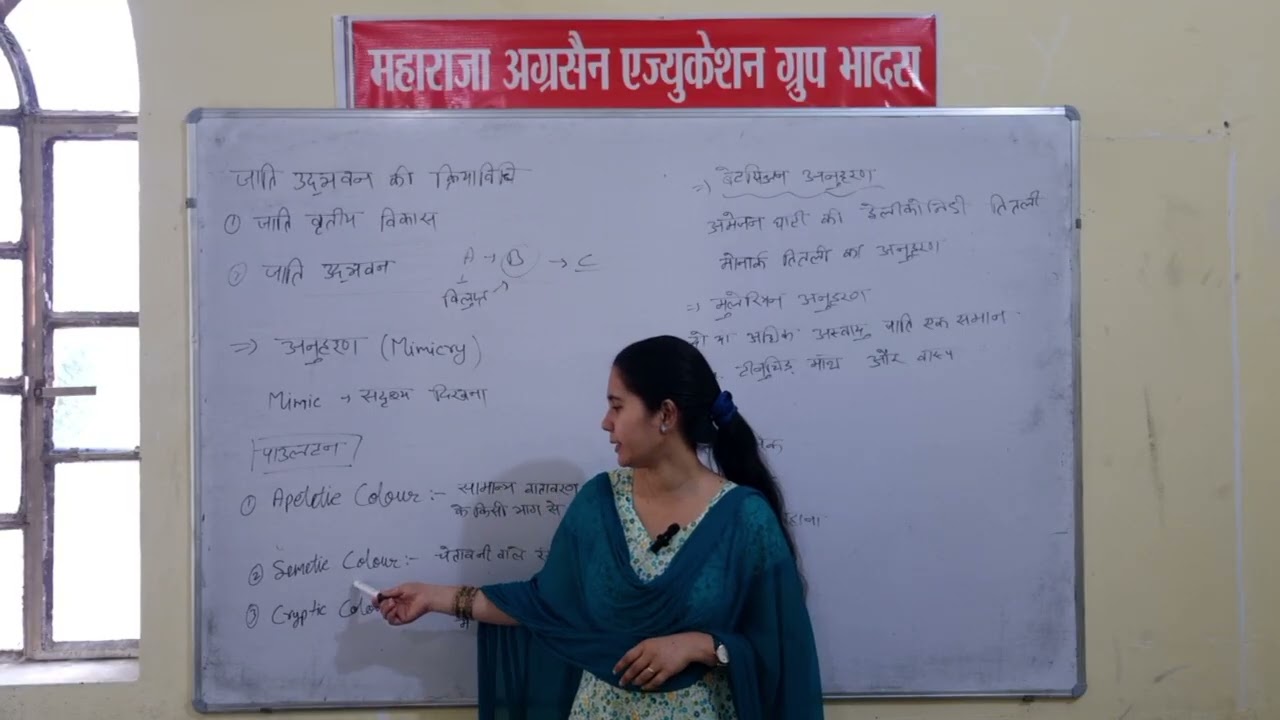 महाराजा अग्रसैन एज्युकेशन ग्रुप भादस
जाति उद्भवन की क्रियाविधि
① जाति वृतीय विकास
② जाति उद्भवन A → B → C
विलुप्त
=> अनुहरण (Mimicry)
Mimic → सदृश्य दिखना
पाउलटन
① Apetetic Colour :- सामान्य वातावरण
के किसी भाग से
② Semetic Colour :- चेतावनी वाले
③ Cryptic
=> बेटसिअन अनुहरण
अमेजन घाटी की डेलीकोनिडी तितली
मोनार्क तितली का अनुहरण
=> मुलेरियन अनुहरण
दो या अधिक अस्वादु जाति एक समान
मॉथ और वास्प